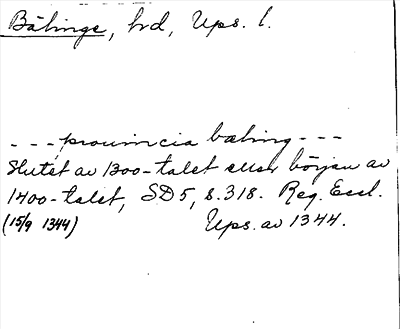 Bälinge, hd, Ups. l.
---prouincia baling---
Slutet av 1300-talet eller början av
1400-talet, SD5, s.318. Reg. Eccl.
(15/9 1344) Ups. av 1344.